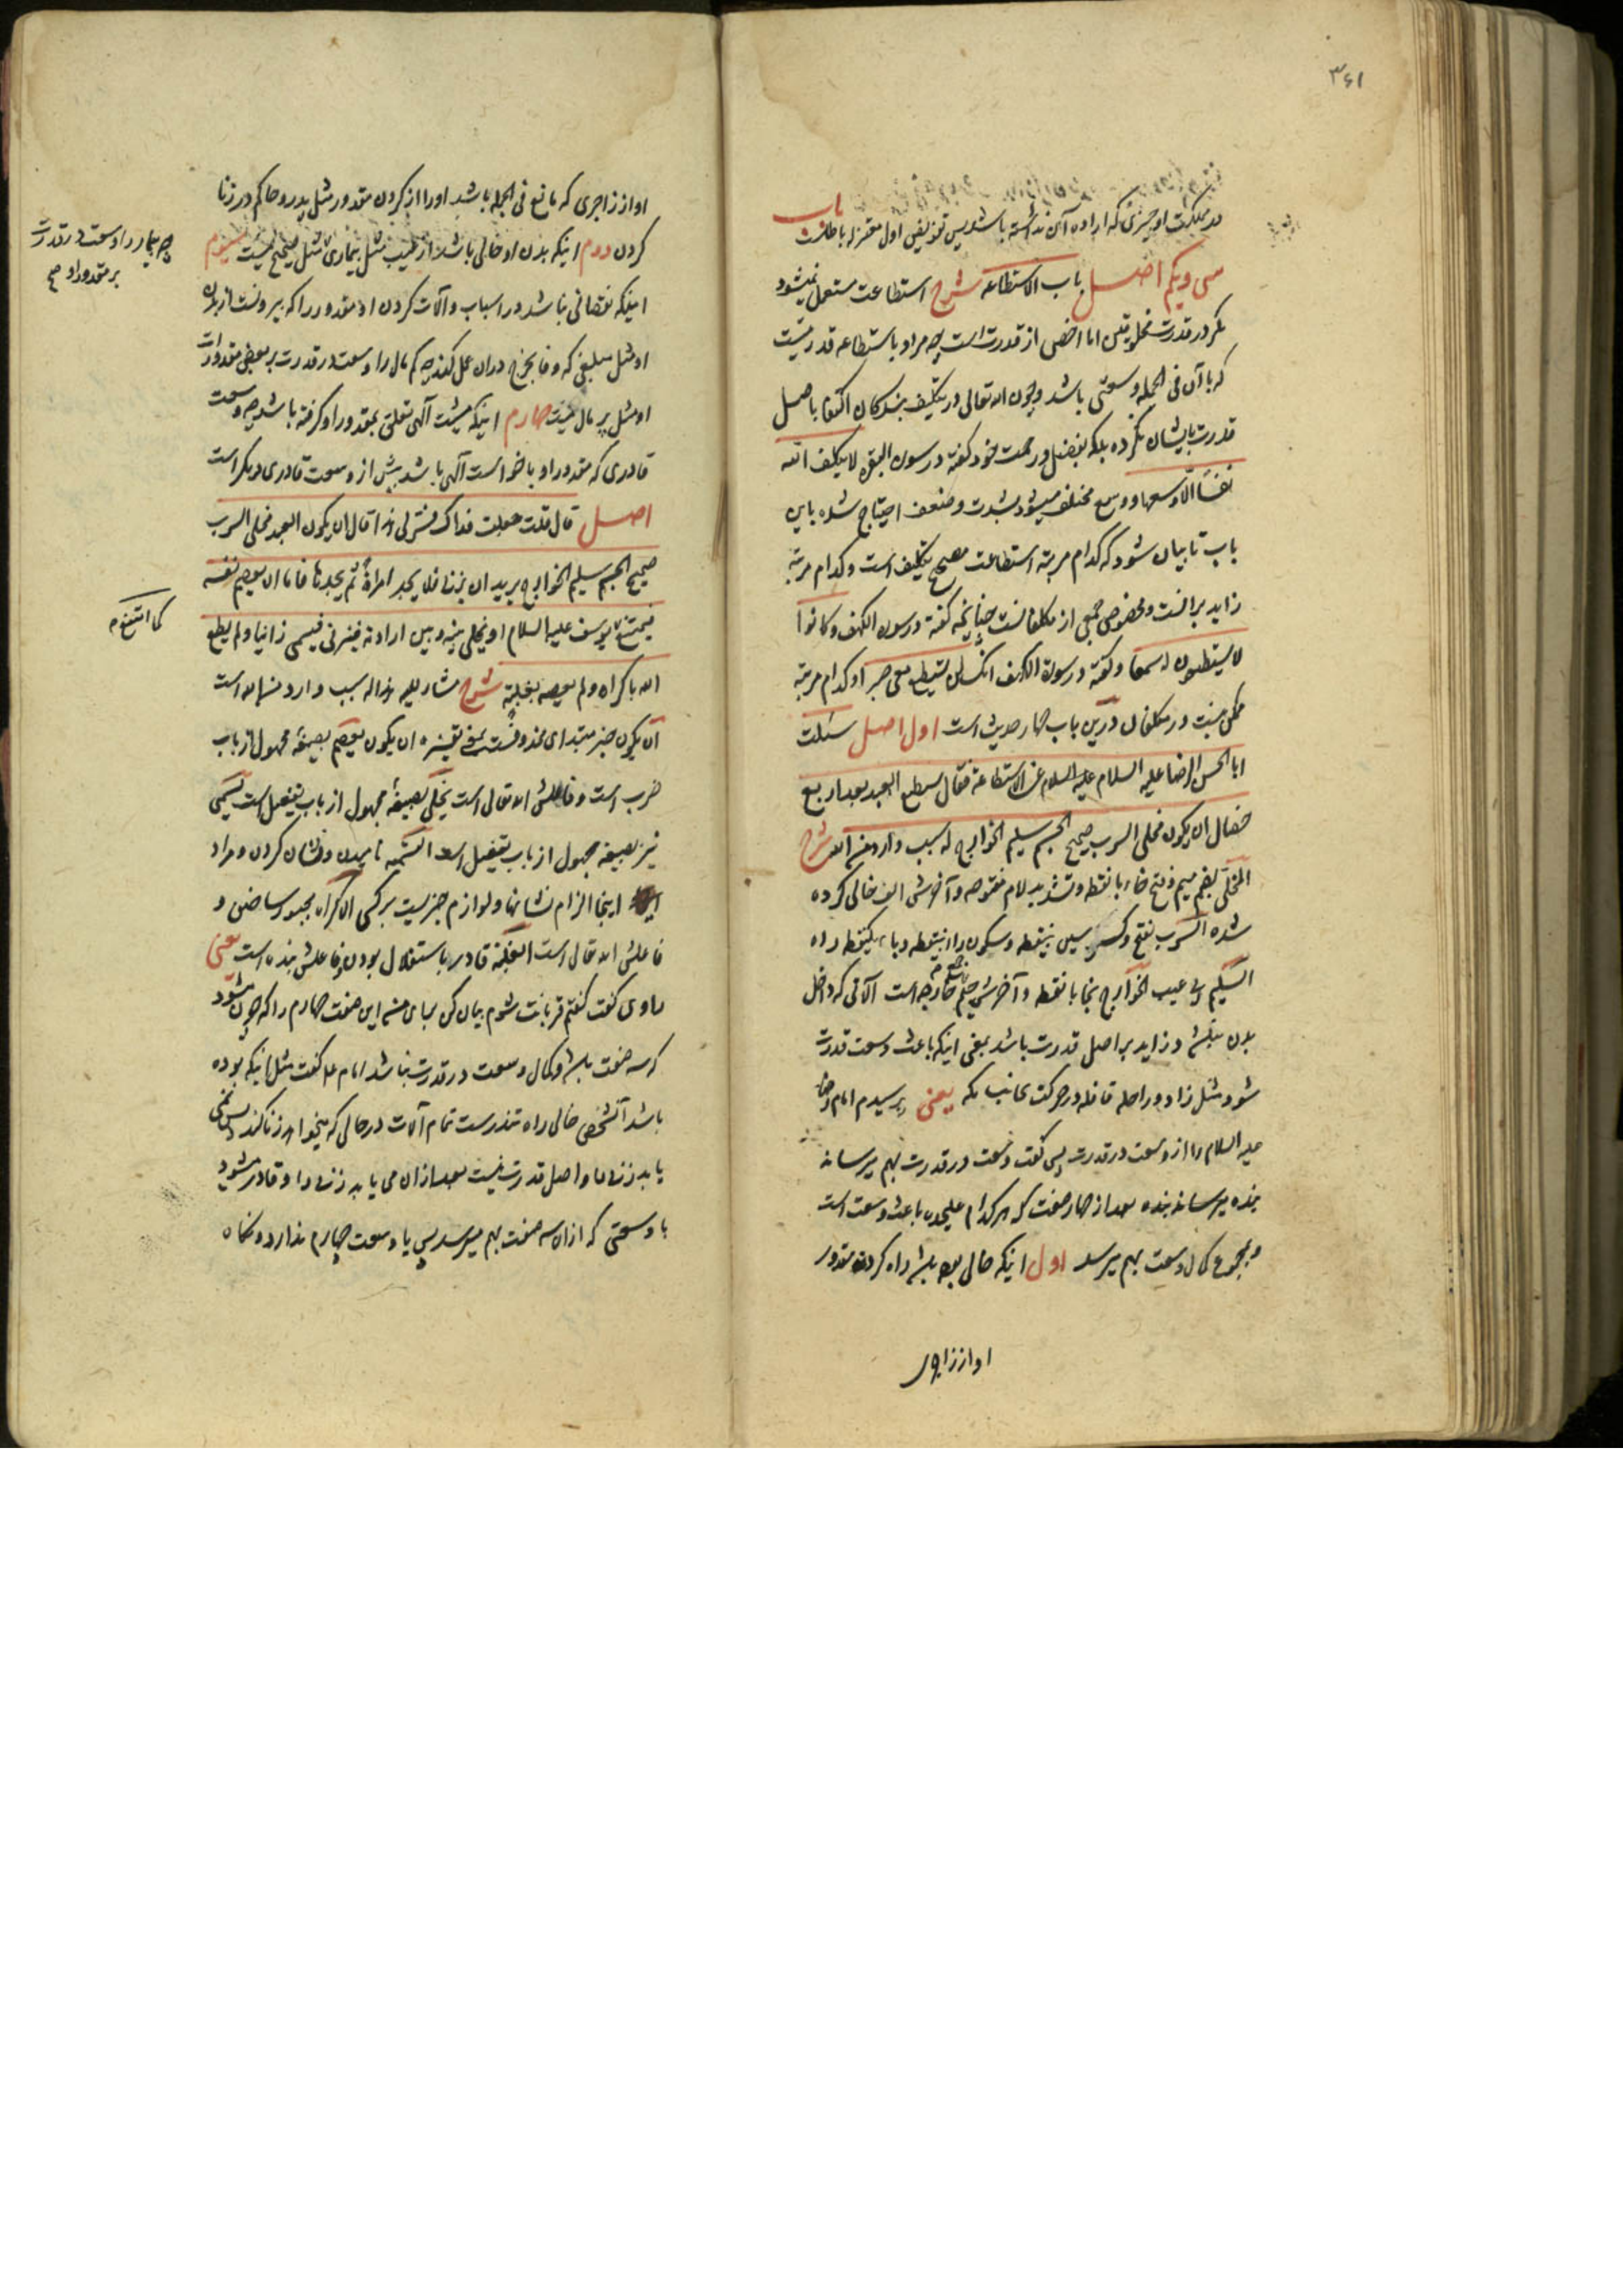 ۳۶۱
در مملکت او چیزی که اراده آن نداشته باشد پس تفویض اول معتزله باطلست باب
سی و یکم اصل باب الاستطاعه شرح استطاعت مستعمل نمیشود
مگر در قدرت مخلوقین اما اخص از قدرت است چه مراد باستطاعه قدرتیست
که با آن فی الجمله وسعتی باشد و چون الله تعالی در تکلیف بندگان اکتفا باصل
قدرت بایشان نکرده بلکه بفضل و رحمت خود گفته در سوره البقره لا یکلف الله
نفسا الا وسعها و وسع مختلف میشود بشدت و ضعف احتیاج شده باین
باب تا بیان شود که کدام مرتبه استطاعت مصحح تکلیف است و کدام مرتبه
زاید بر آنست و مخصوص جمعی از مکلفانست چنانچه گفته در سوره الکهف و کانوا
لا یستطیعون سمعا و گفته در سورة الکهف انک لن تستطیع معی صبرا و کدام مرتبه
ممکن نیست در مکلفان درین باب چهار حدیث است اول اصل سئلت
ابا الحسن الرضا علیه السلام عن الاستطاعة فقال یستطیع العبد بعد اربع
خصال ان یکون مخلی السرب صحیح الجسم سلیم الجوارح له سبب وارد من الله شرح
المخلّی بضم میم و فتح خاء با نقطه و تشدید لام مفتوحه و آخرش الف خالی کرده
شده السرب بفتح و کسر سین بینقطه و سکون راء بینقطه و باء یکنقطه راه
السلیم بی عیب الجوارح بخا با نقطه و آخرش جیم خارجه است آلاتی که داخل
بدن نباشد و زاید بر اصل قدرت باشد بمعنی اینکه باعث وسعت قدرت
شود مثل زاد و راحله قافله در حرکت بجانب مکه یعنی پرسیدم امام رضا
علیه السلام را از وسعت در قدرت پس گفت وسعت در قدرت بهم میرساند
بنده میرساند بنده بعد از چهار صفت که هر کدام علیحده باعث وسعت است
و بمجموع کمال وسعت بهم میرسد اول اینکه خالی بوده باشد راه کردن مقدور
او از زاجری
او از زاجری که مانع فی الجمله باشد او را از کردن مقدور مثل پدر و حاکم در زنا
کردن دوم اینکه بدن او خالی باشد از عیب مثل بیماری مثل صحیح نیست سیوم
چه بیمار را وسعت در قدرت
بر مقدور او صح
اینکه نقصانی نباشد در اسباب و آلات کردن او مقدور را که بیرونست از بدن
او مثل مبلغی که وفا بخرج در آن عمل کند چه کم مال را وسعت در قدرت بر بعض مقدورات
او مثل پر مال نیست چهارم اینکه مشیت آلهی تعلق بمقدور او گرفته باشد چه وسعت
قادری که مقدور او با خواست آلهی باشد بیش از وسعت قادری دیگر است
اصل قال قلت جعلت فداک فسّر لی هذا قال ان یکون العبد مخلی السرب
صحیح الجسم سلیم الجوارح یرید ان یزنی فلا یجد امراة ثم یجدها فاما ان یعصم نفسه
فیمتنع یوسف علیه السلام او یخلی بینه و بین ارادته فیزنی فیسمی زانیا و لم یطع
کما امتنع م
الله باکراه و لم یعصه بغلبة شرح مشار الیه هذا له سبب وارد من الله است
ان یکون خبر مبتدای محذوفست بتقدیر تفسیره ان یکون یعصم بصیغه مجهول از باب
ضرب است و فاعلش الله تعالی است یخلّی بصیغهٔ مجهول از باب تفعیل است یسمّی
نیز بصیغهٔ مجهول از باب تفعیل است التسمیه نامیدن و نشان کردن و مراد
اینجا الزام نشانها و لوازم چیزیست بر کسی الاکراه مجبور ساختن و
فاعلش الله تعالی است الغلبة قادر باستقلال بودن و فاعلش بنده است یعنی
راوی گفت گفتم قربانت شوم بیان کن برای من این صفت چهارم را که چون میشود
که سه صفت باشد و کمال وسعت در قدرت نباشد امام علیه گفت مثل اینکه بوده
باشد آنشخص خالی راه تندرست تمام آلات در حالی که میخواهد زنا کند پس نمی
یابد زنی را و اصل قدرت نیست بعد از آن می یابد زنی را و قادر میشود
با وسعتی که از آن سه صفت بهم میرسد پس یا وسعت چهارم ندارد و نگاه